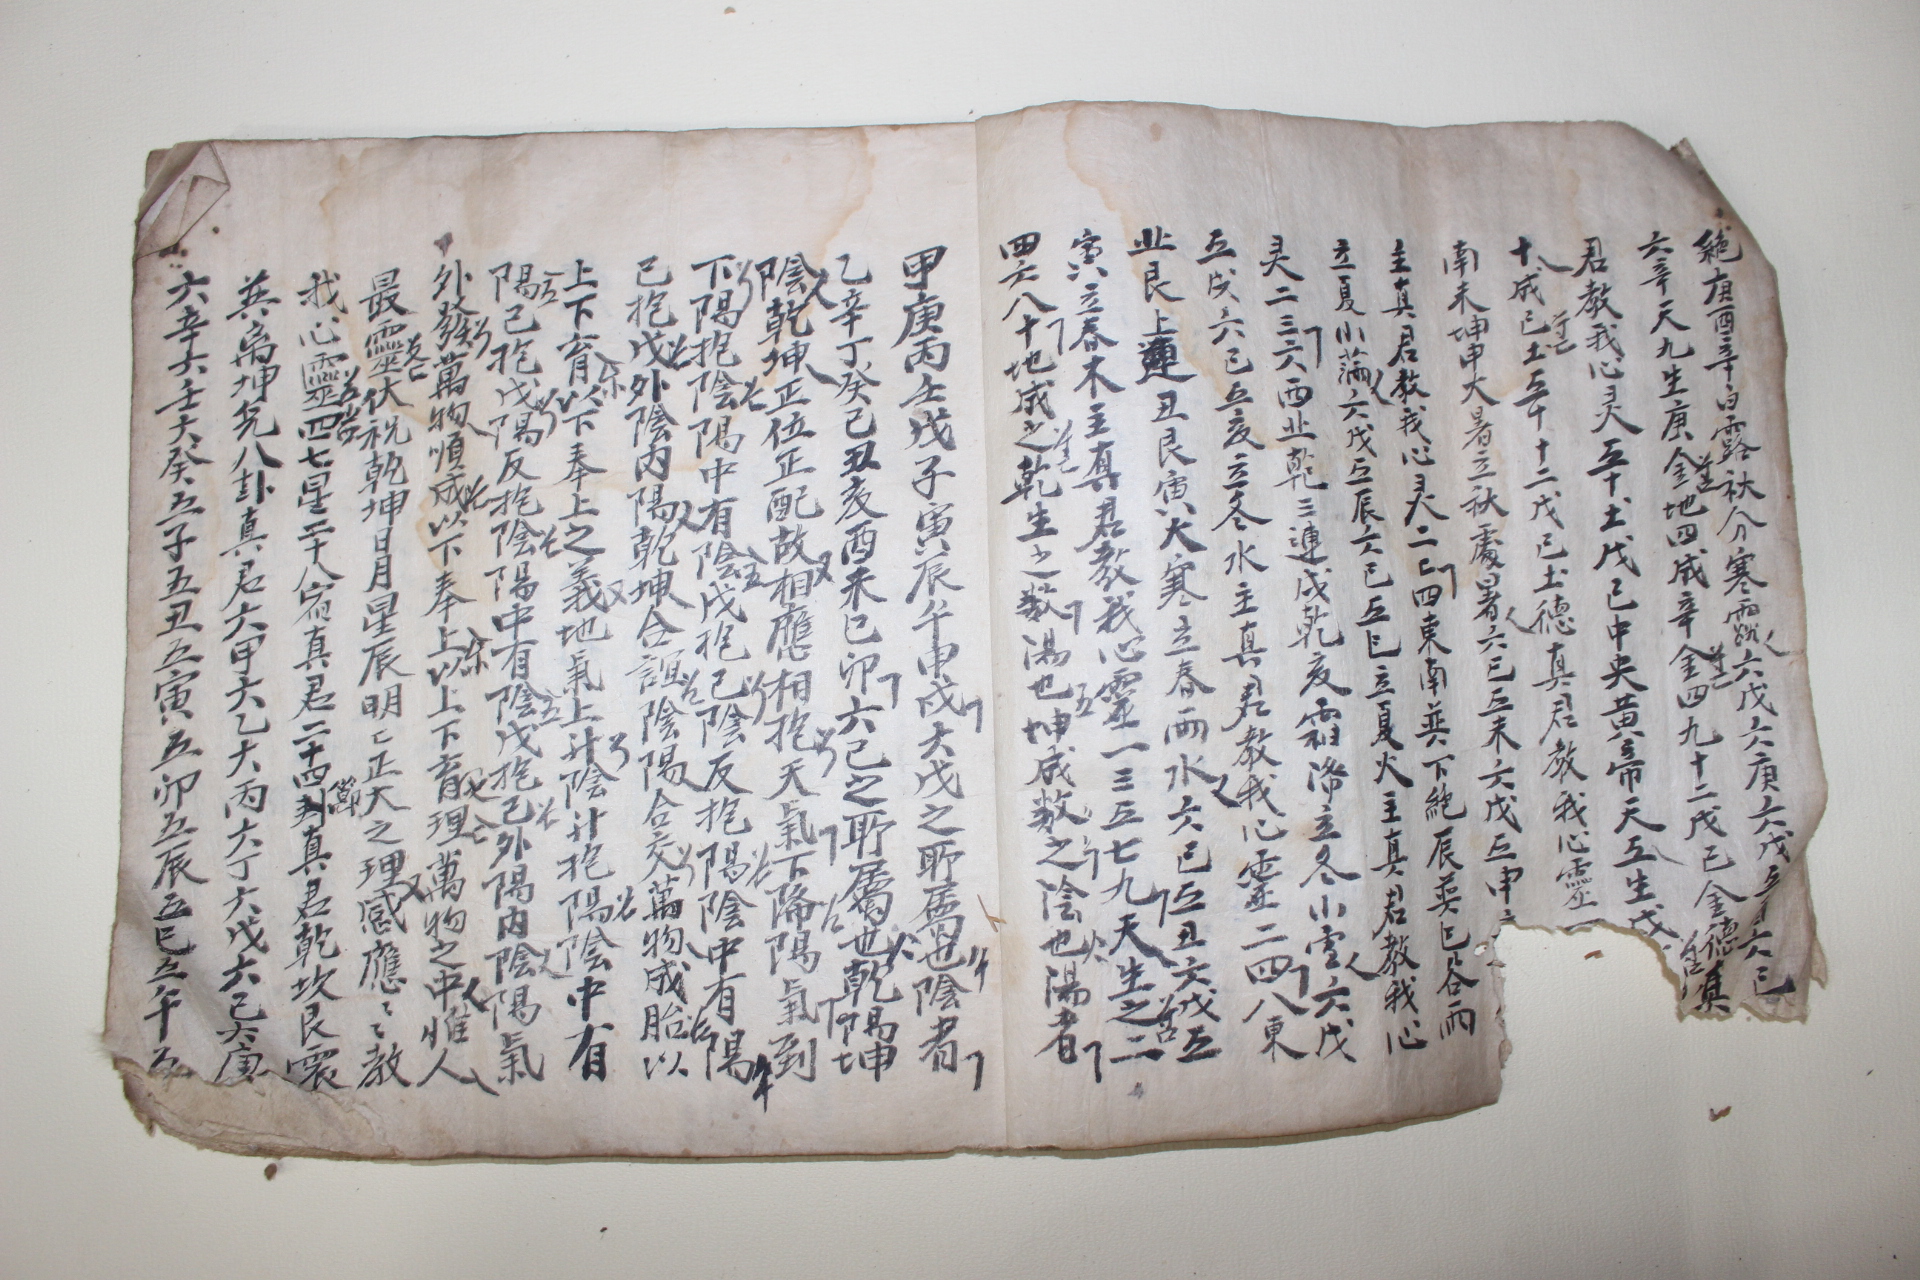 絶庚酉辛白露秋分寒露六戊六庚六戊五酉六己
六辛天九生庚金地四成辛金四九十二戊己金德真
君教我心灵五十土戊己中央黃帝天五生戊
十成己土五十十二戊己土德真君教我心靈
南未坤申大暑立秋處暑六己五未六戊五申
主真君教我心灵二七四東南巽下絶辰巽巳谷雨
立夏小滿六戊五辰六己五巳立夏火主真君教我心
灵二三六西北乾三連戌乾亥霜降立冬小雪六戊
五戌六己五亥立冬水主真君教我心靈二四八東
北艮上連丑艮寅大寒立春雨水六己五丑六戊五
寅立春木主真君教我心靈一三五七九天生之二
四六八十地成之乾生之数湯也坤成数之陰也陽者
甲庚丙壬戊子寅辰午申戌六戊之所属也陰者
乙辛丁癸己丑亥酉未巳卯六己之所属也乾陽坤
陰乾坤正位正配故相應相抱天氣下降陽氣到
下陽抱陰陽中有陰戊抱己陰反抱陽陰中有陽
己抱戊外陰内陽乾坤合誼陰陽合交萬物成胎以
上下育以下奉上之義地氣上升陰升抱陽陰中有
陽己抱戊陽反抱陰陽中有陰戊抱己外陽内陰陽氣
外發萬物順成以下奉上以上下育理萬物之中惟人
最靈伏祝乾坤日月星辰明ミ正大之理感應ミミ教
我心靈四七星二十八宿真君二十四節真君乾坎艮震
巽离坤兌八卦真君六甲六乙六丙六丁六戊六己六庚
六辛六壬六癸五子五丑五寅五卯五辰五巳五午五